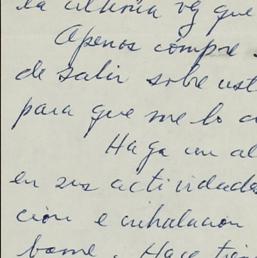 la última vez que
Apenas compre
de salir sobre ust
para que me lo
Haga un al
en sus actividades
ción e inhalacion
bame. Hace tiem